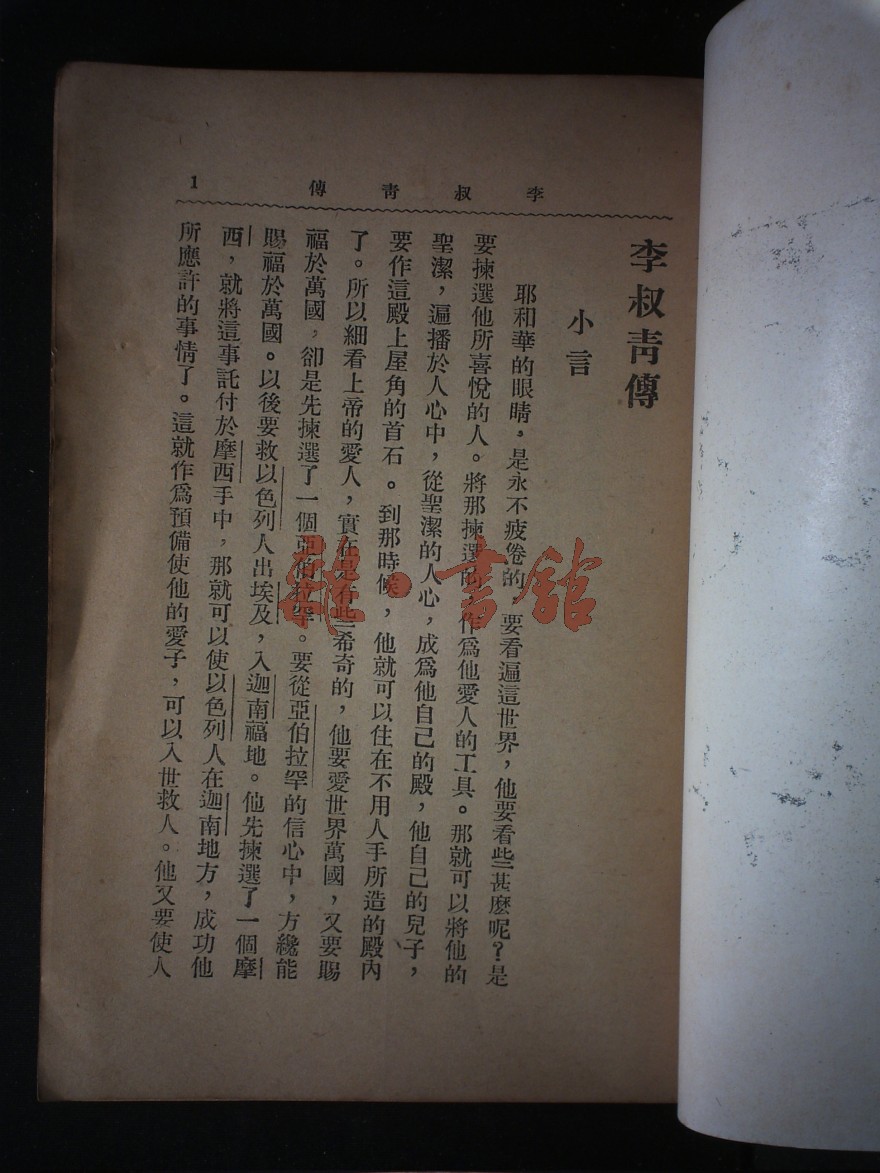 李叔靑傳
1
李叔靑傳
小言
耶和華的眼睛。是永不疲倦的，要看遍這世界，他要看些甚麽呢？是
要揀選他所喜悅的人。將那揀選的，作爲他愛人的工具。那就可以將他的
聖潔，遍播於人心中，從聖潔的人心，成爲他自己的殿，他自己的兒子，
要作這殿上屋角的首石。到那時候，他就可以住在不用人手所造的殿內
了。所以細看上帝的愛人，實在是有些希奇的，他要愛世界萬國，又要賜
福於萬國，卻是先揀選了一個亞伯拉罕。要從亞伯拉罕的信心中，方纔能
賜福於萬國。以後要救以色列人出埃及，入迦南福地。他先揀選了一個摩
西，就將這事託付於摩西手中，那就可以使以色列人在迦南地方，成功他
所應許的事情了。這就作爲預備使他的愛子，可以入世救人。他又要使人
書館